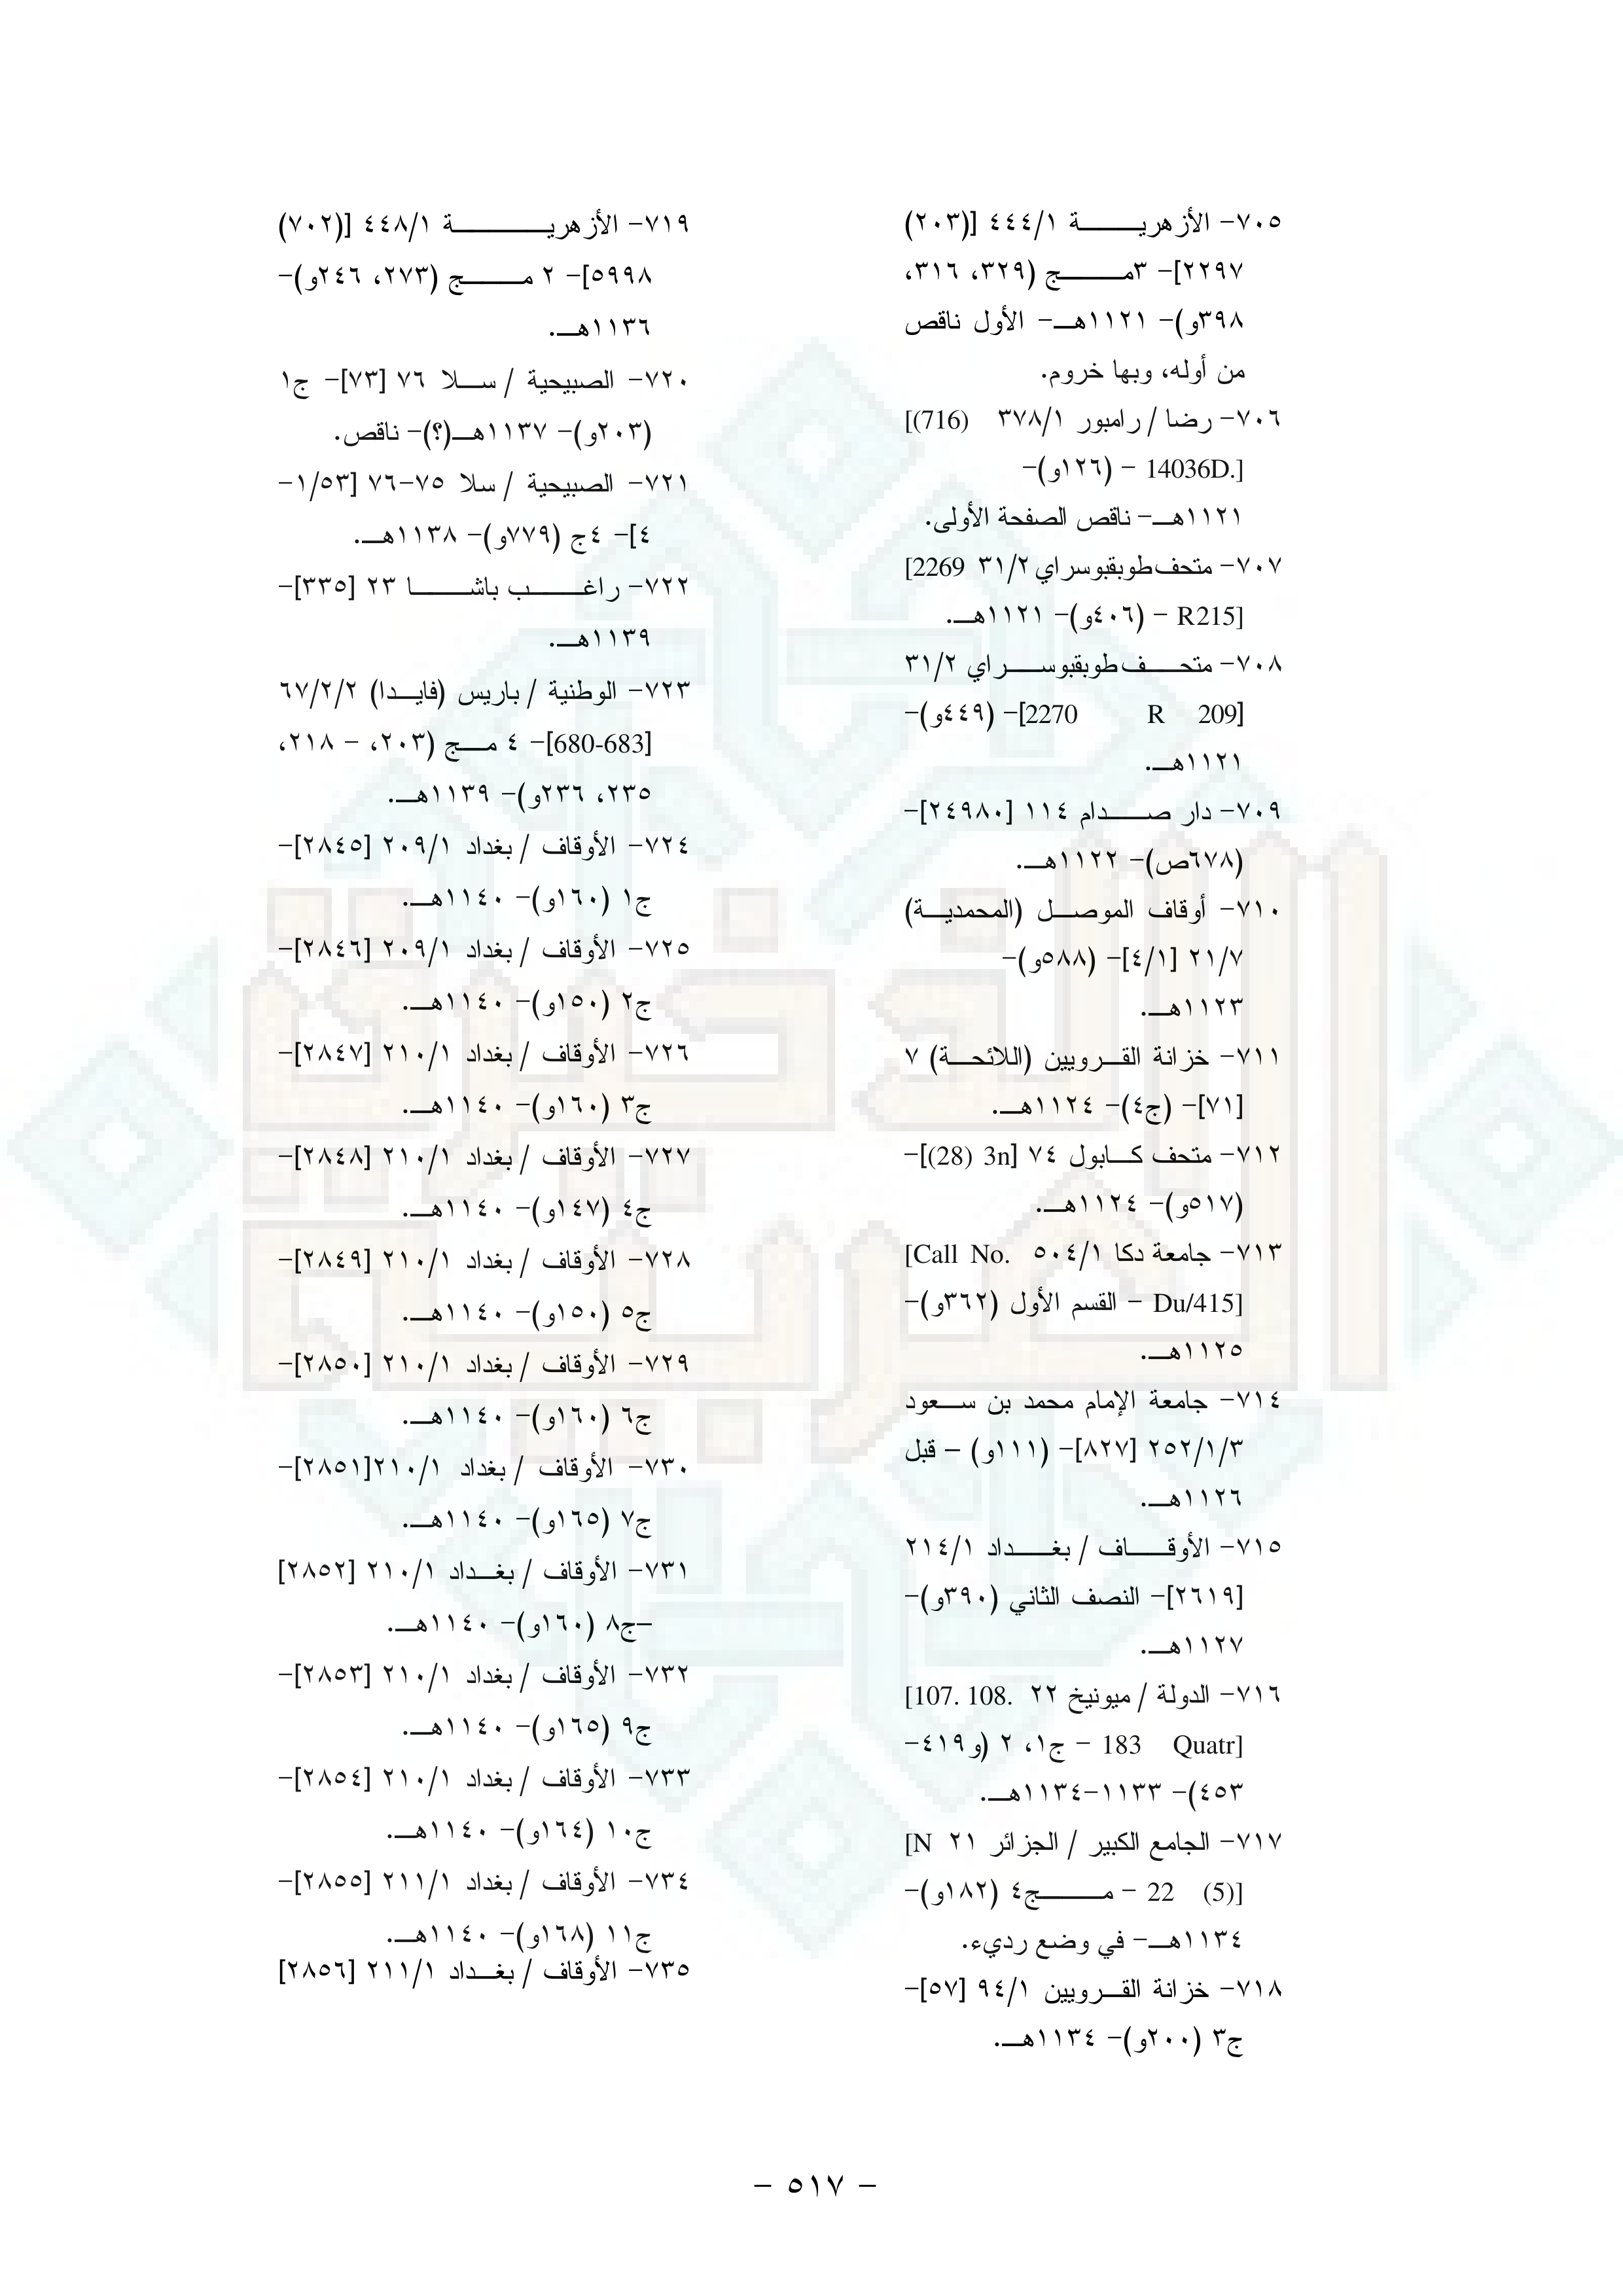 ٧٠٥- الأزهرية ٤٤٤/١ [(٢٠٣)
٢٢٩٧]- ٣مج (٣٢٩، ٣١٦،
٣٩٨و)- ١١٢١هـ- الأول ناقص
من أوله، وبها خروم.
٧٠٦- رضا / رامبور ٣٧٨/١ [(716)
14036D.] - (١٢٦و)-
١١٢١هـ- ناقص الصفحة الأولى.
٧٠٧- متحف طوبقبوسراي ٣١/٢ [2269
R215] - (٤٠٦و)- ١١٢١هـ.
٧٠٨- متحف طوبقبوسراي ٣١/٢
[2270 R 209]- (٤٤٩و)-
١١٢١هـ.
٧٠٩- دار صدام ١١٤ [٢٤٩٨٠]-
(٦٧٨ص)- ١١٢٢هـ.
٧١٠- أوقاف الموصل (المحمدية)
٢١/٧ [٤/١]- (٥٨٨و)-
١١٢٣هـ.
٧١١- خزانة القرويين (اللائحة) ٧
[٧١]- (ج٤)- ١١٢٤هـ.
٧١٢- متحف كابول ٧٤ [3n (28)]-
(٥١٧و)- ١١٢٤هـ.
٧١٣- جامعة دكا ٥٠٤/١ [Call No.
Du/415] - القسم الأول (٣٦٢و)-
١١٢٥هـ.
٧١٤- جامعة الإمام محمد بن سعود
٢٥٢/١/٣ [٨٢٧]- (١١١و) – قبل
١١٢٦هـ.
٧١٥- الأوقاف / بغداد ٢١٤/١
[٢٦١٩]- النصف الثاني (٣٩٠و)-
١١٢٧هـ.
٧١٦- الدولة / ميونيخ ٢٢ [107. 108.
183 Quatr] - ج١، ٢ (و٤١٩-
٤٥٣)- ١١٣٣-١١٣٤هـ.
٧١٧- الجامع الكبير / الجزائر ٢١ [N
22 (5)] - مج٤ (١٨٢و)-
١١٣٤هـ- في وضع رديء.
٧١٨- خزانة القرويين ٩٤/١ [٥٧]-
ج٣ (٢٠٠و)- ١١٣٤هـ.
٧١٩- الأزهرية ٤٤٨/١ [(٧٠٢)
٥٩٩٨]- ٢ مج (٢٧٣، ٢٤٦و)-
١١٣٦هـ.
٧٢٠- الصبيحية / سلا ٧٦ [٧٣]- ج١
(٢٠٣و)- ١١٣٧هـ(؟)- ناقص.
٧٢١- الصبيحية / سلا ٧٥-٧٦ [١/٥٣-
٤]- ٤ج (٧٧٩و)- ١١٣٨هـ.
٧٢٢- راغب باشا ٢٣ [٣٣٥]-
١١٣٩هـ.
٧٢٣- الوطنية / باريس (فايدا) ٦٧/٢/٢
[680-683]- ٤ مج (٢٠٣، - ٢١٨،
٢٣٥، ٢٣٦و)- ١١٣٩هـ.
٧٢٤- الأوقاف / بغداد ٢٠٩/١ [٢٨٤٥]-
ج١ (١٦٠و)- ١١٤٠هـ.
٧٢٥- الأوقاف / بغداد ٢٠٩/١ [٢٨٤٦]-
ج٢ (١٥٠و)- ١١٤٠هـ.
٧٢٦- الأوقاف / بغداد ٢١٠/١ [٢٨٤٧]-
ج٣ (١٦٠و)- ١١٤٠هـ.
٧٢٧- الأوقاف / بغداد ٢١٠/١ [٢٨٤٨]-
ج٤ (١٤٧و)- ١١٤٠هـ.
٧٢٨- الأوقاف / بغداد ٢١٠/١ [٢٨٤٩]-
ج٥ (١٥٠و)- ١١٤٠هـ.
٧٢٩- الأوقاف / بغداد ٢١٠/١ [٢٨٥٠]-
ج٦ (١٦٠و)- ١١٤٠هـ.
٧٣٠- الأوقاف / بغداد ٢١٠/١[٢٨٥١]-
ج٧ (١٦٥و)- ١١٤٠هـ.
٧٣١- الأوقاف / بغداد ٢١٠/١ [٢٨٥٢]
–ج٨ (١٦٠و)- ١١٤٠هـ.
٧٣٢- الأوقاف / بغداد ٢١٠/١ [٢٨٥٣]-
ج٩ (١٦٥و)- ١١٤٠هـ.
٧٣٣- الأوقاف / بغداد ٢١٠/١ [٢٨٥٤]-
ج١٠ (١٦٤و)- ١١٤٠هـ.
٧٣٤- الأوقاف / بغداد ٢١١/١ [٢٨٥٥]-
ج١١ (١٦٨و)- ١١٤٠هـ.
٧٣٥- الأوقاف / بغداد ٢١١/١ [٢٨٥٦]
- ٥١٧ -